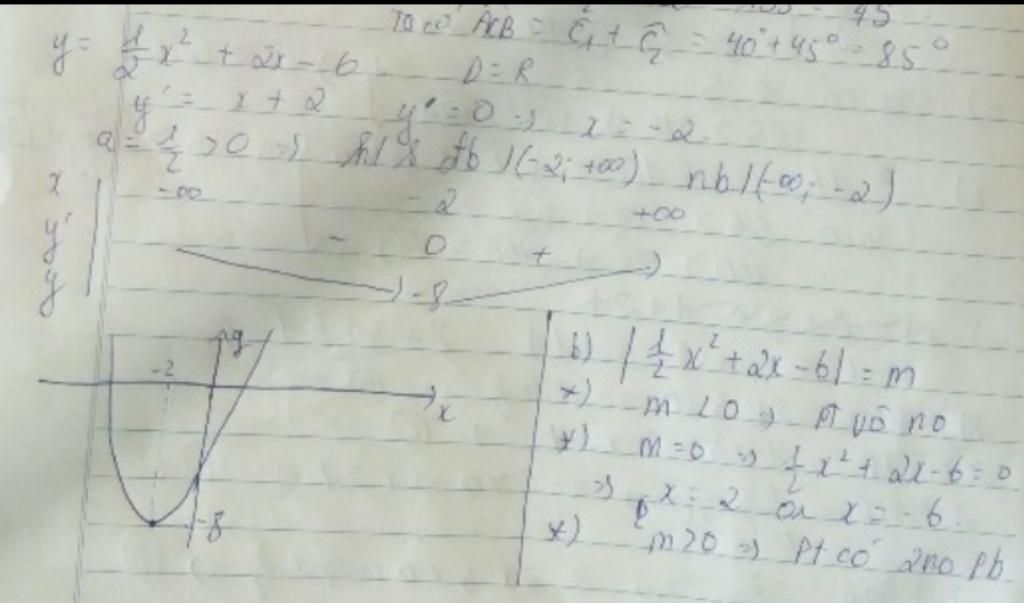 Ta có ACB = C₁ + C₂ = 40° + 45° = 85°
y = 1/2 x² + 2x - 6 D = R
y' = x + 2 y' = 0 => x = -2
a = 1/2 > 0 => h/s đb / (-2; +∞) nb / (-∞; -2)
x -∞ -2 +∞
y' - 0 +
y -8
y
-2
x
-8
b) |1/2 x² + 2x - 6| = m
*) m < 0 => pt vô no
*) m = 0 => 1/2 x² + 2x - 6 = 0
=> x = 2 or x = -6.
*) m > 0 => pt có 2 no pb